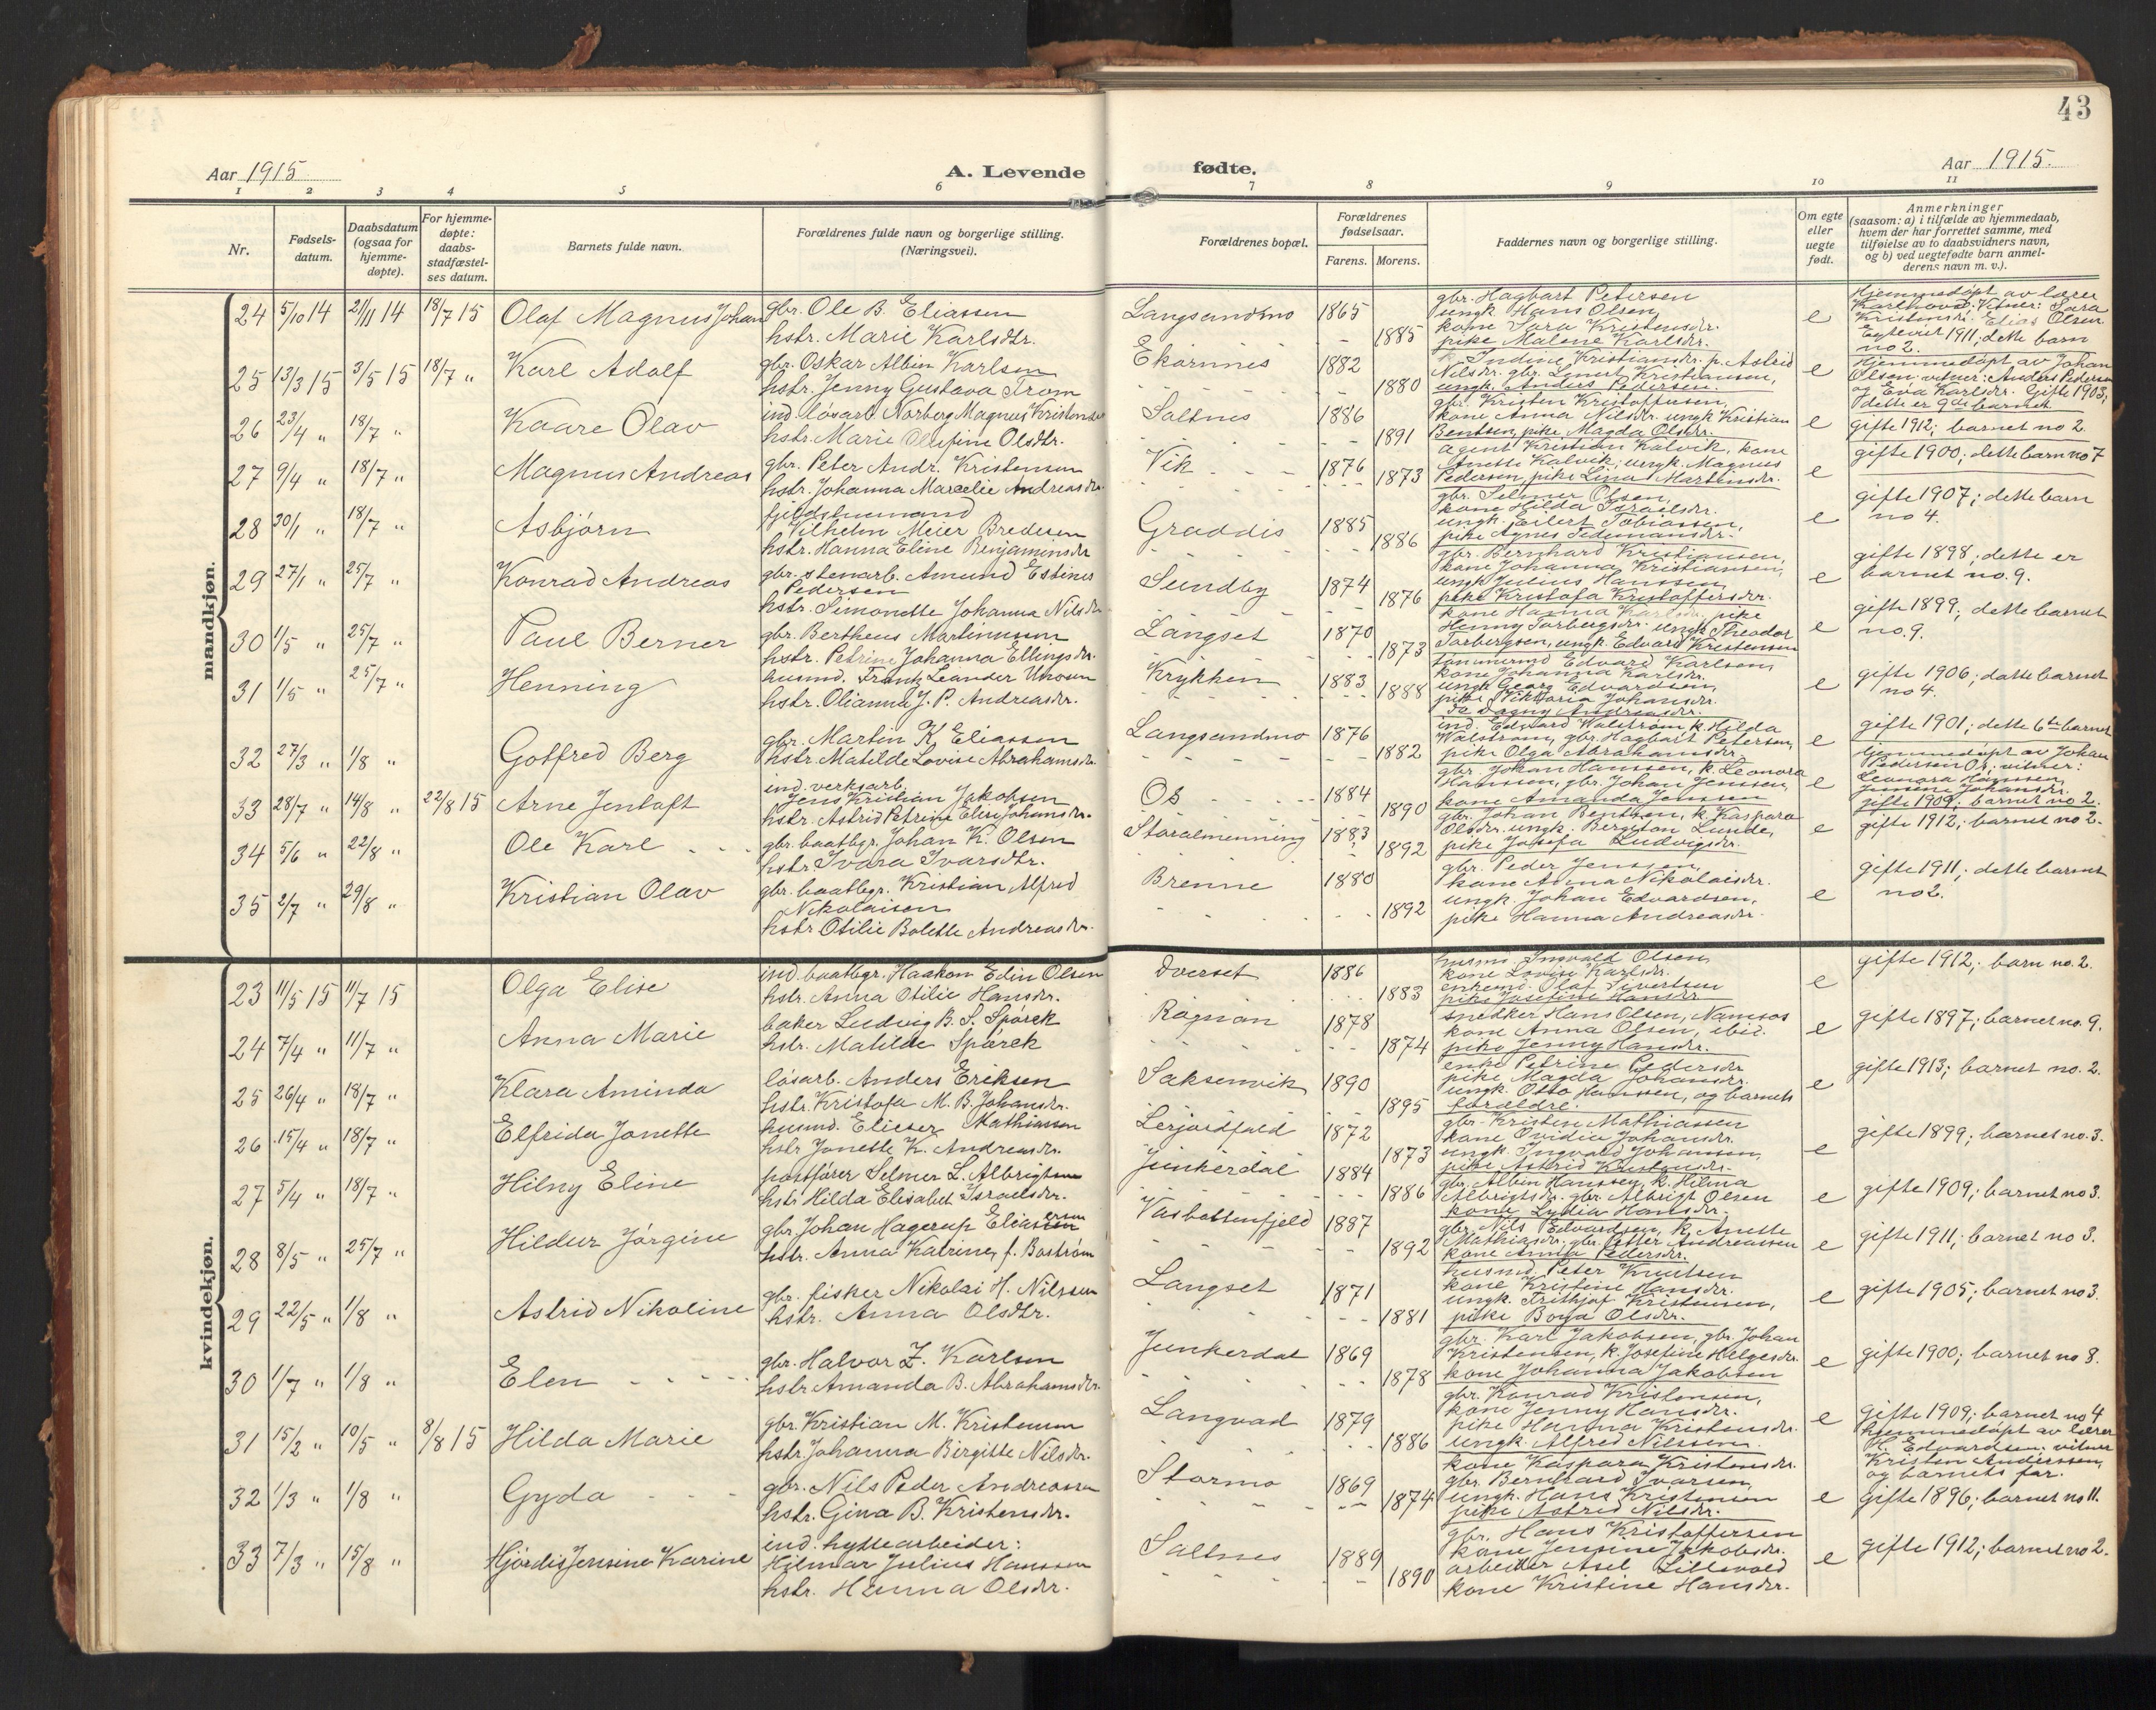 43
Aar 1915
A. Levende
fødte.
Aar 1915.
1 2 3 4 5 6 7 8 9 10 11
Nr.
Fødsels-
datum.
Daabsdatum
(ogsaa for
hjemme-
døpte).
For hjemme-
døpte:
daabs-
stadfæstel-
ses datum.
Barnets fulde navn.
Forældrenes fulde navn og borgerlige stilling.
(Næringsvei).
Forældrenes bopæl.
Forældrenes
fødselsaar.
Farens. Morens.
Faddernes navn og borgerlige stilling.
Om egte
eller
uegte
født.
Anmerkninger
(saasom: a) i tilfælde av hjemmedaab,
hvem der har forrettet samme, med
tilføielse av to daabsvidners navn,
og b) ved uegtefødte barn anmel-
derens navn m. v.).
mandkjøn.
24 5/10 14 21/11 14 18/7 15 Olaf Magnus Johan
gbr. Ole B. Eliassen
hstr. Marie Karlsdtr.
Langsandmo 1865
1885
gbr. Hagbart Petersen
ungk Hans Olsen
kone Sara Kristensdr.
pike Malene Karlsdr.
e
Hjemmedøpt av lærer
Vitner: Sara
Kristensdr. Elias Olsen
Egteviet 1911; dette barn
no 2.
25 13/3 15 3/5 15 18/7 " Karl Adolf
gbr. Oskar Albin Karlsen
hstr. Jenny Gustava Trom
Ekornnes 1882
1880
Indine Kristiansdr. p. Astrid
Nilsdr. gbr. Lenert Kristiansen,
ungk. Anders Pedersen.
e
Hjemmedøpt av Johan
Olsen. vitner: Anders Pedersen
og Eva Karlsdr. Gifte 1903;
dette er 9de barnet
26 23/4 " 18/7 " Kaare Olav
ind. løsarb. Norberg Magnus Kristensen
hstr. Marie Olufine Olsdtr.
Saltnes 1886
1891
gbr. Kristen Kristoffersen,
kone Anna Nilsdr. ungk Kristian
Bentsen, pike Magda Olsdr.
e
gifte 1912; barnet no 2
27 9/4 " 18/7 " Magnus Andreas
gbr. Peter Andr. Kristensen
hstr. Johanna Marcelie Andreasdr.
Vik 1876
1873
agent Kristian Kalvik, kone
Anette Kalvik; ungk. Magnus
Pedersen, pike Lina Martinsdr.
e
gifte 1900; dette barn no 7
28 20/1 " 18/7 " Asbjørn
fjeldshusmand
Vilhelm Meier Bredesen
hstr. Hanna Eline Benjaminsdr
Graddis 1885
1886
gbr. Selmer Olsen,
kone Hilda Israelsdr.
ungk. Eilert Tobiassen,
pike Agnes Tedemansdr.
e
gifte 1907; dette barn
no 4.
29 27/1 " 25/7 " Konrad Andreas
gbr. stenarb. Amund Estines
Pedersen
hstr. Simonette Johanna Nilsdr
Sundby 1874
1876
gbr. Bernhard Kristiansen,
kone Johanna Kristiansen,
ungk Julius Hanssen
pike Kristofa Kristoffersdr.
e
gifte 1898; dette er
barnet no. 9.
30 1/5 " 25/7 " Paul Berner
gbr. Bertheus Martinussen
hstr. Petrine Johanna Ellingsdr.
Langset 1870
1873
kone Hanna Karlsdr., pike
Henny Torbergsdr. ungk Theodor
Torbergsen, ungk. Edvard Kristensen
e
gifte 1899; dette barnet
no. 9.
31 1/5 " 25/7 " Henning
husmd. Frank Leander
hstr. Olianna J. P. Andreasdr.
Krykkin 1883
1888
tømmermd Edvard Karlsen,
kone Johanna Karlsdr.
ungk Georg Edvardsen,
pike Viktoria Johansdr.
do Dagny Andreasdr.
e
gifte 1906; dette barnet
no 4.
32 27/3 " 1/8 " Gotfred Berg
gbr. Martin K Eliassen
hstr. Matilde Lovise Abrahamsdr.
Langsandmo 1876
1882
ind. Edvard Walstrøm, k. Hilda
Walstrøm, gbr. Hagbart Petersen,
pike Olga Abrahamsdr.
e
gifte 1901; dette 6te barnet
33 28/7 " 14/8 " 22/8 15 Arne Jentoft
ind. verksarb.
Jens Kristian Jakobsen
hstr. Astrid Petrine Elise Johansdr.
Os 1884
1890
gbr. Johan Hanssen, k. Leonora
Hanssen, gbr. Johan Jenssen,
kone Amanda Jenssen
e
hjemmedøpt av Johan
Pedersen Os; vitner:
Leonora Hanssen,
Jensine Johansdr.
gifte 1909; barnet no 2.
34 5/6 " 22/8 " Ole Karl
gbr. baatbgr. Johan K. Olsen
hstr. Ivara Ivarsdtr.
Storalmenning 1883
1892
gbr. Johan Bentsen, k. Kaspara
Olsdr. ungk. Bergiton Lunde,
pike Josefa Ludvigsdr.
e
gifte 1912; barnet no 2.
35 2/7 " 29/8 " Kristian Olav
gbr. baatbgr. Kristian Alfred
Nikolaisen
hstr Otilie Bolette Andreasdr.
Brenne 1880
1892
gbr. Peder Jenssen,
kone Anna Nikolaisdr.
ungk. Johan Edvardsen,
pike Hanna Andreasdr.
e
gifte 1911; dette barnet
no 2.
kvindekjøn.
23 11/5 15 11/7 15 Olga Elise
ind. baatbgr. Haakon Edin Olsen
hstr. Anna Otilie Hansdr.
Dverset 1886
1883
husmd. Ingvald Olsen
kone Lovise Karlsdr.
enkemd. Olaf Sivertsen
pike Josefine Hansdr
e
gifte 1912; barn no. 2.
24 7/4 " 11/7 " Anna Marie
baker Ludvig B. S. Spørck
hstr. Matilde Spørck
Rognan 1878
1874
snedker Hans Olsen, Namsos
kone Anna Olsen, ibid.
pike Jenny Hansdr.
e
gifte 1897; barnet no. 9.
25 26/4 " 18/7 " Klara Aminda
løsarb. Anders Eriksen
hstr. Kristofa M. B. Johansdr.
Saksenvik 1890
1895
enke Petrine Pedersdr
pike Magda Johansdr.
ungk Otto Hanssen, og barnets
forældre.
e
gifte 1913; barnet no. 2.
26 15/4 " 18/7 " Elfrida Jonette
husmd. Elieser Mathiassen
hstr Jonette K. Andreasdr.
Lerjordfald 1872
1873
gbr. Kristen Mathiassen
kone Ovidia Johansdr.
ungk. Ingvald Johansen,
pike Astrid Kristensdr.
e
gifte 1899; barnet no. 3.
27 5/4 " 18/7 " Hilny Eline
postfører Selmer L. Albrigtsen
hstr Hilda Elisabet Israelsdr.
Junkerdal 1884
1886
gbr. Albin Hanssen, k. Hilma
Albrigtsdr. gbr. Albrigt Olsen
kone Lydia Hansdr.
e
gifte 1909; barnet no 3.
28 8/5 " 25/7 " Hildur Jørgine
gbr. Johan Hagerup Eliassen
hstr. Anna Katrine, f. Bostrøm
Vasbottenfjeld 1887
1892
gbr. Nils Edvardsen, k. Anette
Mathiasdr. gbr. Petter Andreassen
kone Anna Pedersdr.
e
gifte 1911; barnet no 3.
29 22/5 " 1/8 " Astrid Nikoline
gbr. fisker Nikolai H. Nilssen
hstr. Anna Olsdtr.
Langset 1871
1881
husmd. Peter Knutsen
kone Kristine Hansdr.
ungk. Frithjof Kristensen,
pike Borja Olsdr.
e
gifte 1905; barnet no 3.
30 1/7 " 1/8 " Elen
gbr. Halvor Z. Karlsen
hstr Amanda B. Abrahamsdr.
Junkerdal 1869
1878
gbr. Karl Jakobsen, gbr. Johan
Kristensen, k. Josefine Helgesdr.
kone Johanna Jakobsen
e
gifte 1900; barnet no 8.
31 15/2 " 10/5 " 8/8 15 Hilda Marie
gbr. Kristian M. Kristensen
hstr. Johanna Birgitte Nilsdr.
Langvad 1879
1886
gbr. Konrad Kristensen,
kone Jenny Hansdr.
pike Hanna Kristensdr.
ungk. Alfred Nilssen
e
Gifte 1909; barnet no 4
hjemmedøpt av lærer
H. Edvardsen. vitner
Kristen Anderssen,
og barnets far.
32 1/3 " 1/8 " Gyda
gbr. Nils Peder Andreassen
hstr. Gina B. Kristensdr.
Stormo 1869
1874
kone Kaspara Kristensdr.
gbr. Bernhard Ivarsen,
ungk. Hans Kristensen
pike Astrid Nilsdr.
e
gifte 1896; barnet no 11.
33 7/3 " 15/8 " Hjørdis Jensine Karine
ind. hyttearbeider:
Hilmar Julius Hanssen
hstr. Hanna Olsdr.
Saltnes 1889
1890
gbr. Hans Kristoffersen
kone Jensine Jakobsdr.
arbeider Axel Lillevold
kone Kristine Hansdr.
e
gifte 1912; barnet no 2.